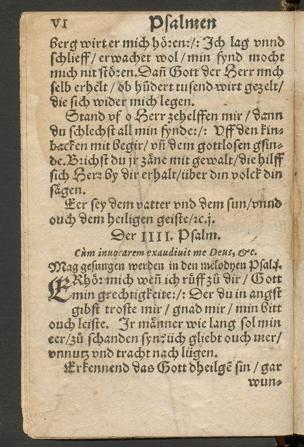 VI Psalmen
berg wirt er mich hören:/: Ich lag vnnd
schlieff/ erwachet wol/ min fynd mocht
mich nit stören. Dañ Gott der Herr mich
selb erhelt/ ob hüdert tusend wirt gezelt/
die sich wider mich legen.
Stand vf o Herz zehelffen mir/ dann
du schlechst all min fynde:/: Vff den kin-
backen mit begir/ vñ dem gottlosen gsin-
de. Brichst du jr zäne mit gewalt/ die hilff
sich Herz by dir erhalt/ über din volck din
sägen.
Eer sey dem vatter vnd dem sun/ vnnd
ouch dem heiligen geiste/ꝛc.j.
Der IIII. Psalm.
Cùm inuocarem exaudiuit me Deus, &c.
Mag gesungen werden in den melodyen Psal.
ERhör mich weñ ich rüff zů dir/ Gott
min grechtigkeite:/: Der du in angst
gibst troste mir/ gnad mir/ min bitt
ouch leiste. Ir männer wie lang sol min
eer/ zů schanden synrüch gliebt ouch mer/
vnnutz vnd tracht nach lügen.
Erkennend das Gott dheilgẽ sin/ gar
wun-